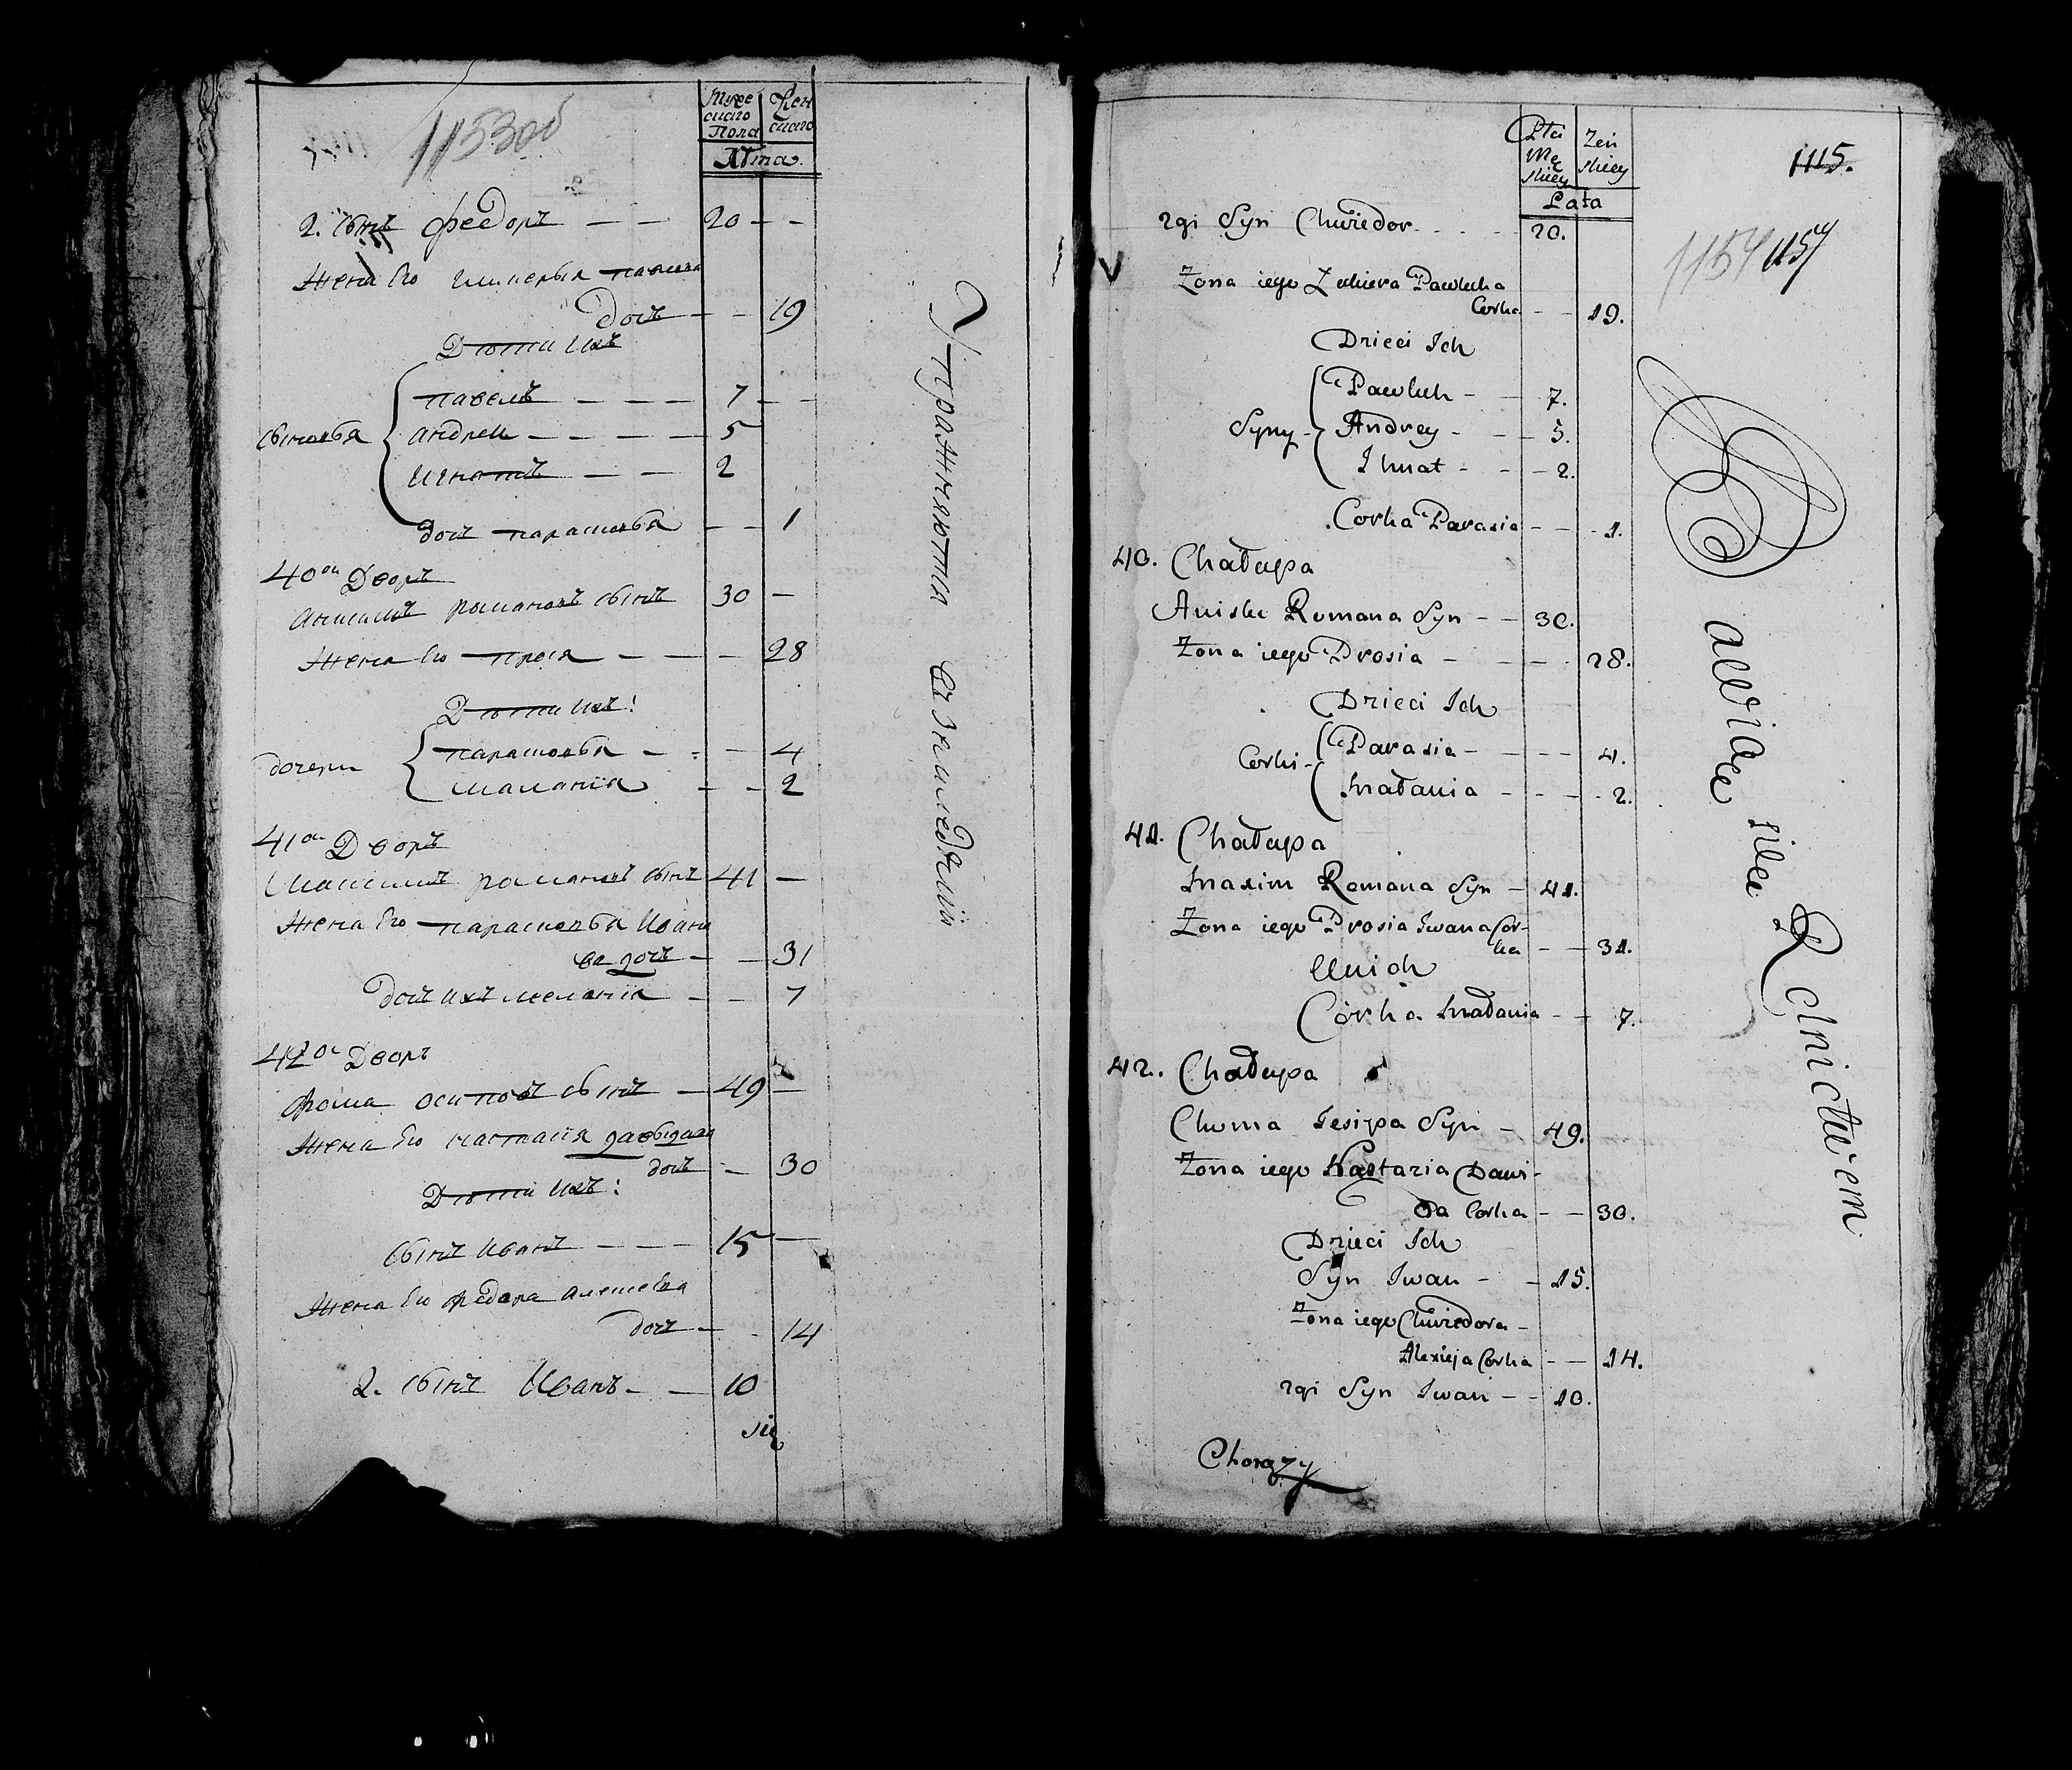 1153об
Муже
скаго
Пола
Жен
скаго
Лѣта
2. сынъ Федоръ — — 20 — —
Жена Его Гликерья Павлова
дочь — — 19
Дѣти Ихъ
Павелъ — — — 7 — —
сыновья Андрей — — — — 5
Игнатъ — — — 2
дочь Парасковья — — 1
40ой Дворъ
Анисимъ Романовъ сынъ 30 —
Жена Его Прося — — — 28
Дѣти Ихъ:
Парасковья — — — 4
дочери
Маланія — — 2
41ой Дворъ
Максимъ Романовъ сынъ 41 —
Жена Его Парасковья Ивано
ва дочь — — 31
дочь Ихъ Меланія — — 7
42ой Дворъ
Фома Осиповъ сынъ — 49 —
Жена Его Настасія Давыдова
дочь — 30
Дѣти Ихъ:
Сынъ Иванъ — — — 15 —
Жена Его Федора Алексѣева
дочь — - 14
2. сынъ Иванъ — — 10
się
Упражняются въ земледѣліи
Płci
Mę
skiey
Zen
skiey
Lata
1115.
1154 1154
2gi Syn Chwiedor - - - - 20.
Zona iego Lukiera Pawluka
Corka - - 19.
Dzieci Ich
Pawluk - - 7.
Syny - Andrey - - - 5.
Ihnat - - - 2.
Corka Parasia - - - 1.
40. Chałupa
Anisko Romana Syn - - 30.
Zona iego Prosia - - - 28.
Dzieci Ich
Parasia - - - - 4.
Corki -
Małania - - - - 2.
41. Chałupa
Maxim Romana Syn - 41.
Zona iego Prosia Iwana Cor-
ka - - 31.
U nich
Córka Małania - - 7.
42. Chałupa
Choma Jesipa Syn - 49.
Zona iego Nastazia Dawi-
da Corka - - 30.
Dzieci Ich
Syn Iwan - - 15.
Zona iego Chwiedora -
Alexieja Corka - - 14.
2gi Syn Iwan - - 10.
Chorązy
Bawiące się Rolnictwem